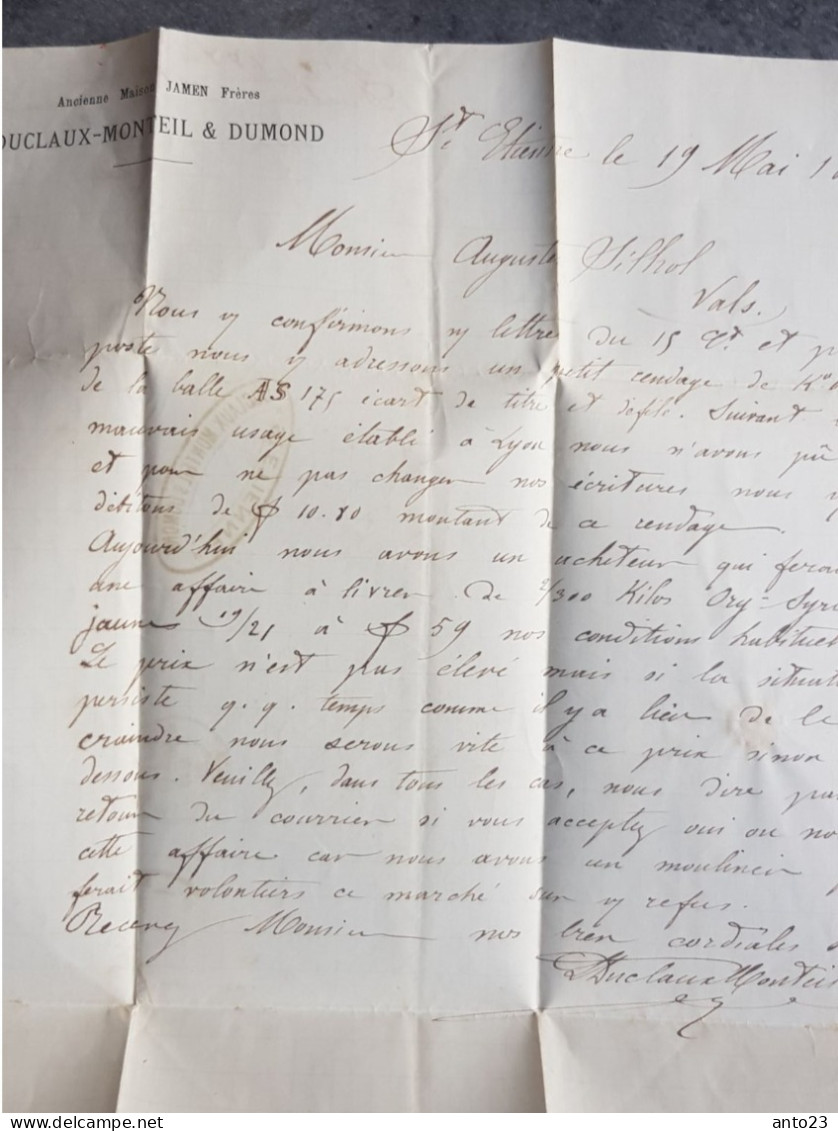 Ancienne Maison JAMEN Frères
DUCLAUX-MONTEIL & DUMOND
St Etienne le 19 Mai 1
Monsieur Auguste Silhol
Vals.
Nous v confirmons n/ lettre du 15 ct et p
poste nous v adressons un petit rendage de K°
de la balle AS 175 écart de titre et défilé. Suivant
mauvais usage établi à Lyon nous n'avons pû
et pour ne pas changer nos écritures nous
débitons de f 10.80 montant de ce rendage.
Aujourd'hui nous avons un acheteur qui ferai
une affaire à livrer de 2/300 Kilos Org- Syri
jaunes 19/21 à f 59 nos conditions habituel
Le prix n'est pas élevé mais si la situat
persiste q.q. temps comme il y a lieu de le
craindre nous serons vite à ce prix sinon
dessous. Veuillez, dans tous les cas, nous dire pa
retour du courrier si vous acceptez oui ou no
cette affaire car nous avons un moulinier
ferait volontiers ce marché sur v refus.
Recevez Monsieur nos bien cordiales
Duclaux Monteil
anto23